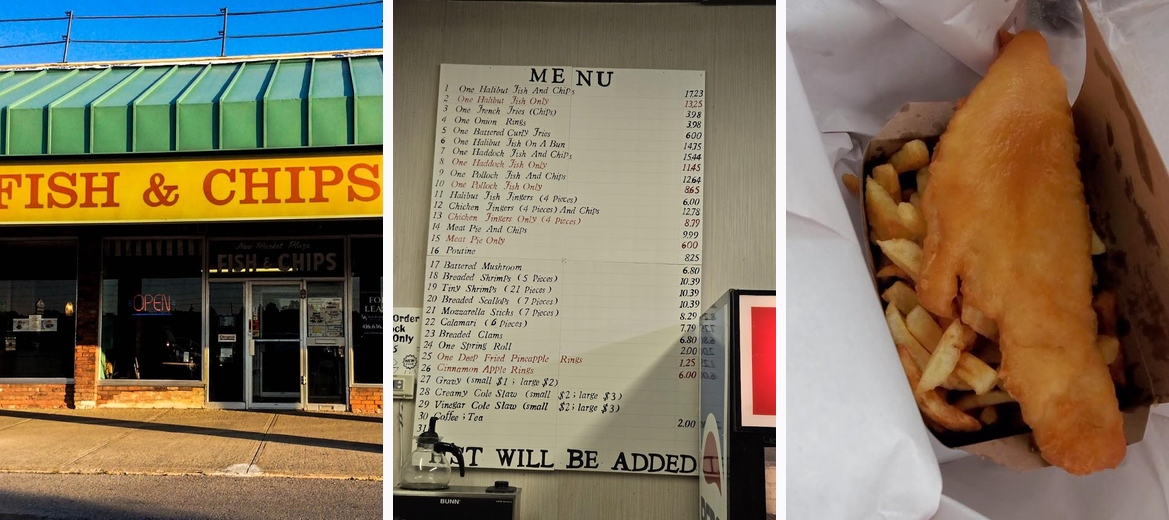 FISH & CHIPS
New Market Plaza
FISH & CHIPS
OPEN
MENU
1 One Halibut Fish And Chips 17.23
2 One Halibut Fish Only 13.25
3 One French Fries (Chips) 3.98
4 One Onion Rings 3.98
5 One Battered Curly Fries 6.00
6 One Halibut Fish On A Bun 14.35
7 One Haddock Fish And Chips 15.44
8 One Haddock Fish Only 11.45
9 One Pollock Fish And Chips 12.64
10 One Pollock Fish Only 8.65
11 Halibut Fish Fingers (4 Pieces) 6.00
12 Chicken Fingers (4 Pieces) And Chips 12.78
13 Chicken Fingers Only (4 Pieces) 8.79
14 Meat Pie And Chips 9.99
15 Meat Pie Only 6.00
16 Poutine 8.25
17 Battered Mushroom 6.80
18 Breaded Shrimps (5 Pieces) 10.39
19 Tiny Shrimps (21 Pieces) 10.39
20 Breaded Scallops (7 Pieces) 10.39
21 Mozzarella Sticks (7 Pieces) 8.29
22 Calamari (6 Pieces) 7.79
23 Breaded Clams 6.80
24 One Spring Roll 2.00
25 One Deep Fried Pineapple Rings 1.25
26 Cinnamon Apple Rings 6.00
27 Gravy (small $1; large $2)
28 Creamy Cole Slaw (small $2; large $3)
29 Vinegar Cole Slaw (small $2; large $3)
30 Coffee; Tea 2.00
31
ST WILL BE ADDED
Order
ck
Only
BUNN